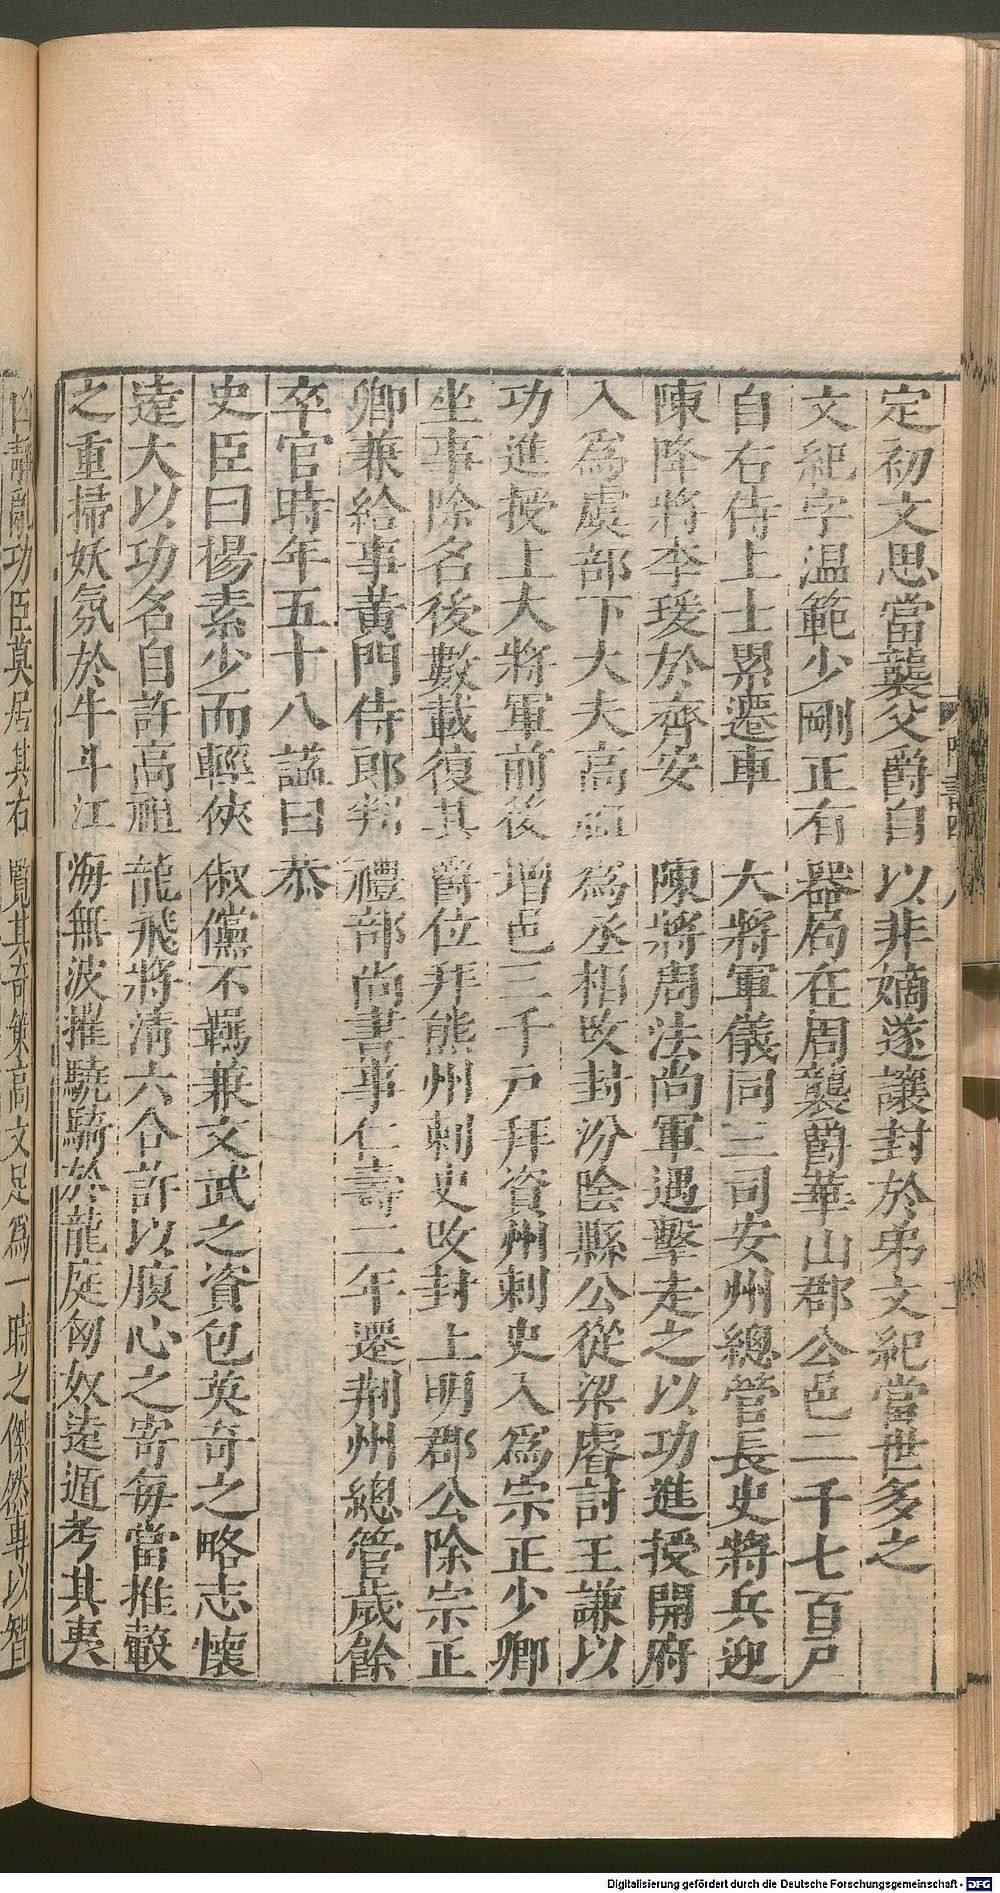 定初文思當襲父爵自以非嫡遂讓封於弟文紀當世多之
文紀字温範少剛正有器局在周襲爵華山郡公邑二千七百戸
自右侍上士累遷車大將軍儀同三司安州總管長史將兵迎
陳降將李瑗於齊安陳將周法尚軍遇擊走之以功進授開府
入爲虞部下大夫高祖爲丞相改封汾陰縣公從梁睿討王謙以
功進授上大將軍前後増邑三千戸拜資州刺史入爲宗正少卿
坐事除名後數載復其爵位拜熊州刺史改封上明郡公除宗正
卿兼給事黄門侍郎判禮部尚書事仁壽二年遷荆州總管歲餘
卒官時年五十八謚曰恭
史臣曰楊素少而輕俠俶儻不羈兼文武之資包英奇之略志懷
逺大以功名自許高祖龍飛將清六合許以腹心之寄毎當推轂
之重掃妖氛於牛斗江海無波摧驍騎於龍庭匈奴逺遁考其夷
靜亂功臣莫居其右覽其奇策高文足爲一時之傑然專以智
Digitalisierung gefördert durch die Deutsche Forschungsgemeinschaft - DFG